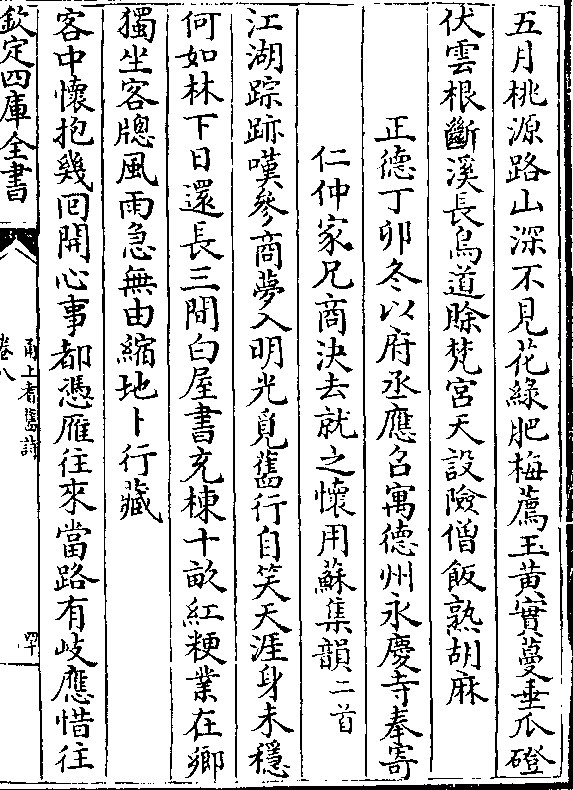 五月桃源路山深不見花綠肥梅薦玉黄實蔓垂瓜磴
伏雲根斷溪長鳥道賒梵宮天設險僧飯熟胡麻
正德丁卯冬以府丞應召寓德州永慶寺奉寄
仁仲家兄商決去就之懷用蘇集韻二首
江湖踪跡嘆參商夢入明光覓舊行自笑天涯身未穩
何如林下日還長三間白屋書充棟十畝紅粳業在鄉
獨坐客牎風雨急無由縮地卜行藏
客中懷抱幾囘開心事都憑雁往來當路有岐應惜往
欽定四庫全書
甬上耆舊詩
卷八